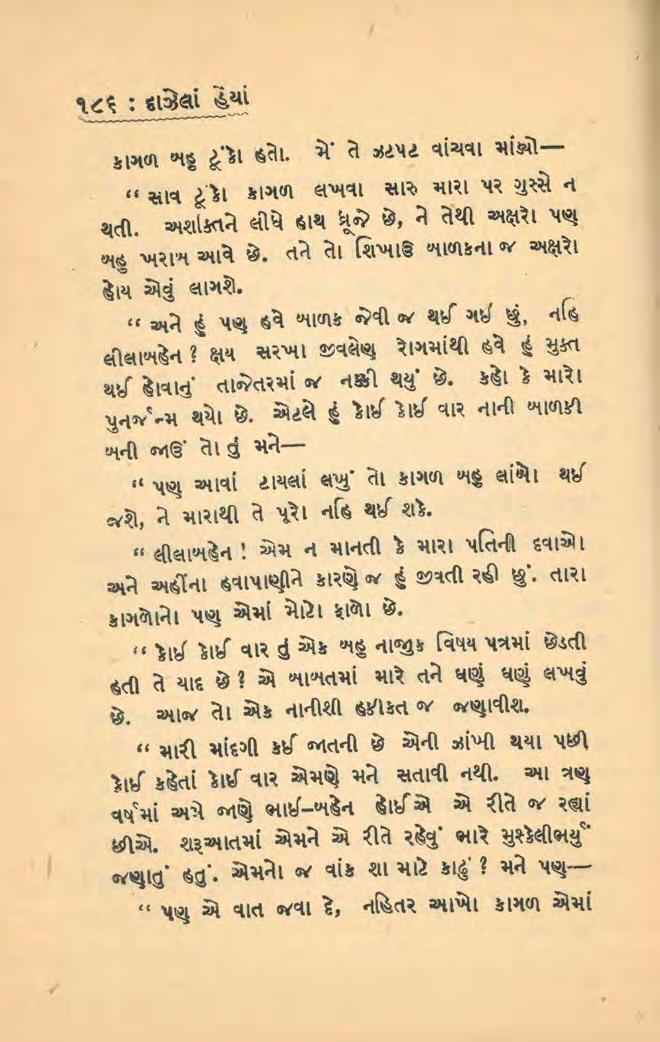 ૧૮૬ : દાઝેલાં હૈયાં
કાગળ બહુ ટૂંકો હતો. મેં તે ઝટપટ વાંચવા માંડ્યો—
“ સાવ ટૂંકો કાગળ લખવા સારુ મારા પર ગુસ્સે ન
થતી. અશક્તિને લીધે હાથ ધ્રૂજે છે, ને તેથી અક્ષરો પણ
બહુ ખરાબ આવે છે. તને તો શિખાઉ બાળકના જ અક્ષરો
હોય એવું લાગશે.
“ અને હું પણ હવે બાળક જેવી જ થઈ ગઈ છું, નહિ
લીલાબહેન ? ક્ષય સરખા જીવલેણ રોગમાંથી હવે હું મુક્ત
થઈ હોવાનું તાજેતરમાં જ નક્કી થયું છે. કહો કે મારો
પુનર્જન્મ થયો છે. એટલે હું કોઈ કોઈ વાર નાની બાળકી
બની જાઉં તો તું મને—
“ પણ આવાં ટાયલાં લખું તો કાગળ બહુ લાંબો થઈ
જશે, ને મારાથી તે પૂરો નહિ થઈ શકે.
“ લીલાબહેન ! એમ ન માનતી કે મારા પતિની દવાઓ
અને અહીંના હવાપાણીને કારણે જ હું જીવતી રહી છું. તારા
કાગળોનો પણ એમાં મોટો ફાળો છે.
“ કોઈ કોઈ વાર તું એક બહુ નાજુક વિષય પત્રમાં છેડતી
હતી તે યાદ છે ? એ બાબતમાં મારે તને ઘણું ઘણું લખવું
છે. આજ તો એક નાનીશી હકીકત જ જણાવીશ.
“ મારી માંદગી કઈ જાતની છે એની ઝાંખી થયા પછી
કોઈ કહેતાં કોઈ વાર એમણે મને સતાવી નથી. આ ત્રણ
વર્ષમાં અમે જાણે ભાઈ–બહેન હોઈએ એ રીતે જ રહ્યાં
છીએ. શરૂઆતમાં એમને એ રીતે રહેવું ભારે મુશ્કેલીભર્યું
જણાતું હતું. એમનો જ વાંક શા માટે કાઢું ? મને પણ—
“ પણ એ વાત જવા દે, નહિતર આખો કાગળ એમાં